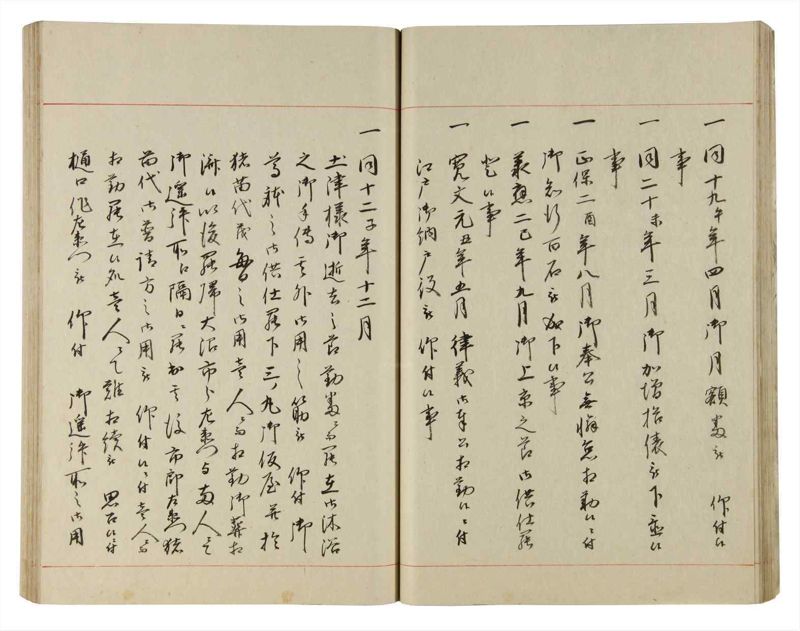 一同十九午年四月御月額番被 仰付候
事
一同二十未年三月御加増拾俵被下置候
事
一正保二酉年八月御奉公無懈怠相勤候ニ付
御知行百石被成下候事
一承應二巳年九月御上京之節御供仕罷
登候事
一寛文元丑年五月律義御奉公相勤候ニ付
江戸御納戸役被 仰付候事
一同十二子年十二月
土津様御逝去之節勤番ニ而罷在御沐浴
之御手傳其外御用之筋被 仰付御
尊骸之御供仕罷下三ノ丸御仮屋并於
猪苗代茂毎日之御用壱人ニ而相勤御葬相
濟候以後罷帰大沼市郎左衛門与両人ニ而
御遷許所江隔日ニ罷出其後市郎左衛門猪
苗代御普請方之御用被 仰付候ニ付壱人ニ而
相勤罷在候処壱人ニ而難相続被 思召候付
樋口作左衛門被 仰付 御遷許所之御用